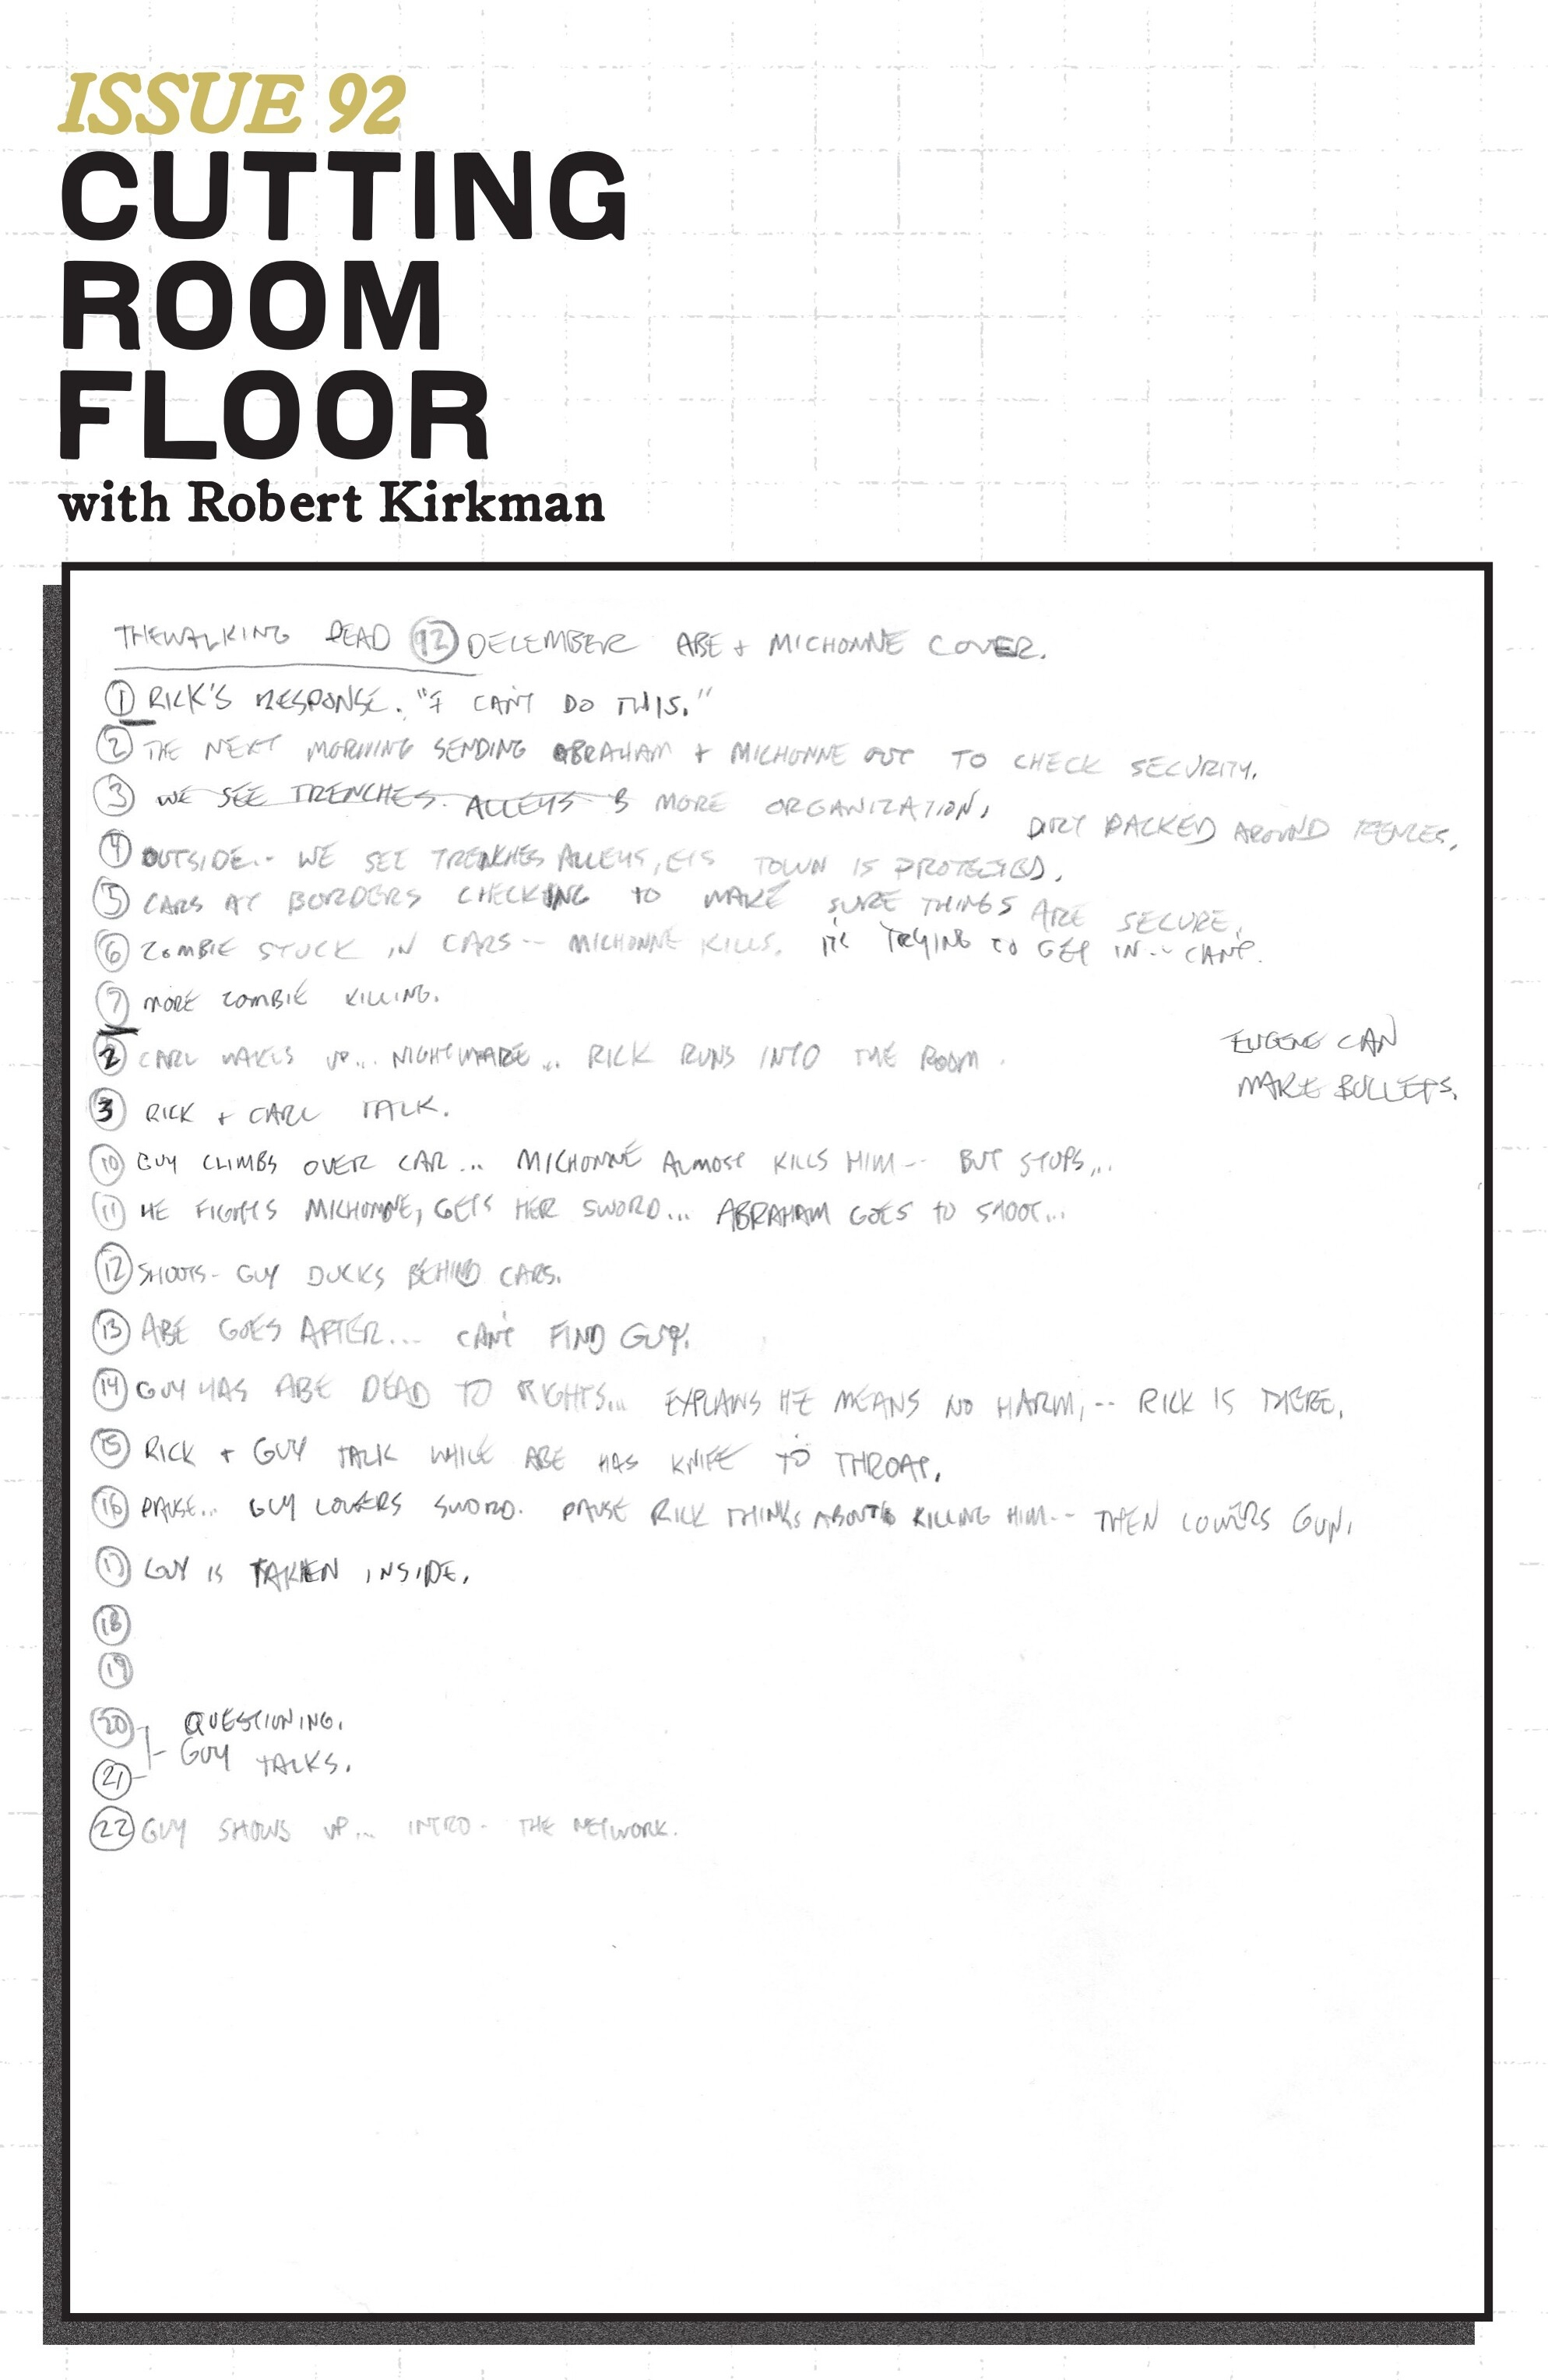 ISSUE 92
CUTTING
ROOM
FLOOR
with Robert Kirkman
THE WALKING DEAD 92 DECEMBER ABE + MICHONNE COVER.
1 RICK'S RESPONSE. "I CAN'T DO THIS."
2 THE NEXT MORNING SENDING ABRAHAM + MICHONNE OUT TO CHECK SECURITY.
3 WE SEE TRENCHES. ALLEYS MORE ORGANIZATION, DIRT PACKED AROUND FENCES.
4 OUTSIDE-- WE SEE TRENCHES ALLEYS, ETS TOWN IS PROTECTED.
5 CARS AT BORDERS CHECKING TO MAKE SURE THINGS ARE SECURE.
6 ZOMBIE STUCK IN CARS-- MICHONNE KILLS. TRYING TO GET IN-- CAN'T.
7 MORE ZOMBIE KILLING.
2 CARL WAKES UP... NIGHTMARE... RICK RUNS INTO THE ROOM.
EUGENE CAN
MAKE BULLETS.
3 RICK + CARL TALK.
10 GUY CLIMBS OVER CAR... MICHONNE ALMOST KILLS HIM-- BUT STOPS...
11 HE FIGHTS MICHONNE, GETS HER SWORD... ABRAHAM GOES TO SHOOT...
12 SHOOTS- GUY DUCKS BEHIND CARS.
13 ABE GOES AFTER... CAN'T FIND GUY.
14 GUY HAS ABE DEAD TO RIGHTS... EXPLAINS HE MEANS NO HARM, -- RICK IS THERE.
15 RICK + GUY TALK WHILE ABE HAS KNIFE TO THROAT.
16 PAUSE... GUY LOWERS SWORD. PAUSE RICK THINKS ABOUT KILLING HIM-- THEN LOWERS GUN.
17 GUY IS TAKEN INSIDE.
18
19
20 QUESTIONING.
21 GUY TALKS.
22 GUY SHOWS UP... INTRO- THE NETWORK.